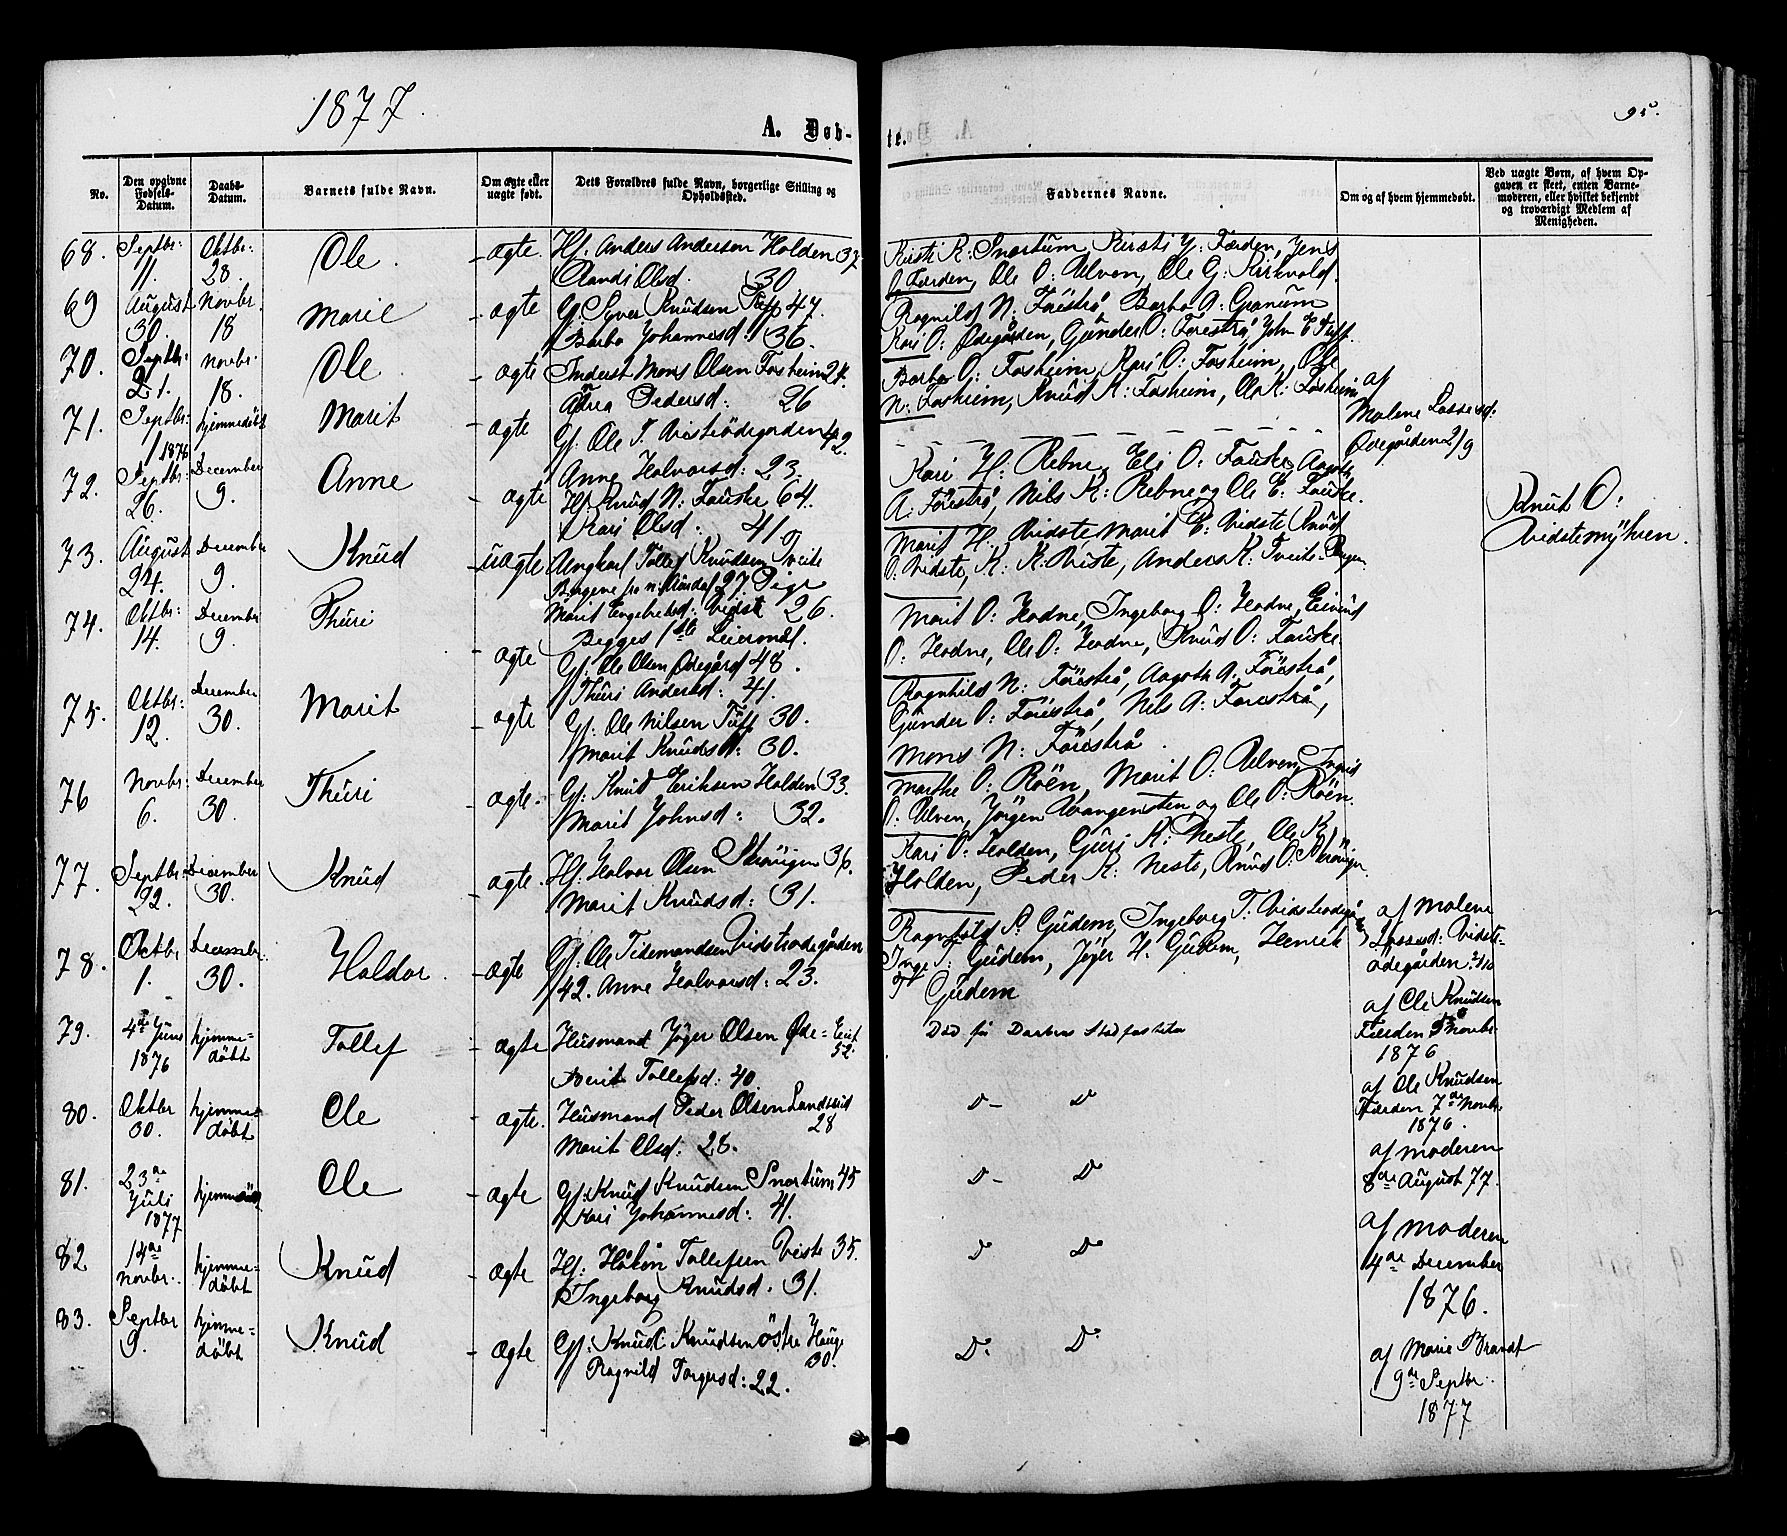 1877.
A. Døb-
te.
95.
No.
Den opgivne Fødsels-Datum.
Daabs-Datum.
Barnets fulde Navn.
Om ægte eller uægte født.
Dets Forældres fulde Navn, borgerlige Stilling og Opholdssted.
Faddernes Navne.
Om og af hvem hjemmedøbt.
Ved uægte Børn, af hvem Opgaven er skeet, enten Barnemoderen, eller hvilket bekjendt og troværdigt Medlem af Menigheden.
68. Septbr: 11. Oktbr: 28. Ole. ægte. Hf. Anders Andersen Holden 37
Randi Olsd. 30
Kirsti K: Snortum, Kirsti Y: Færden, Jens
O. Færden, Ole O: Ulven, Ole G: Kirkvold.
69 August 30. Novbr. 18 Marit ægte G. Syver Knudsen Tuff 47.
Barbo Johannesd: 36.
Ragnild N: Forestrå, Barbo A: Granum
Kari O: Ødegården, Gunder O: Forestrå, John E Tuff.
70. Septbr: 21. Novbr. 18. Ole. ægte Inderst Mons Olsen Fosheim 24.
Pedersd: 26
Barbo O: Fosheim, Kari O: Fosheim, Ole
N: Fosheim, Knud K: Fosheim, Ole K: Fosheim
71. Septbr: 1 1876 hjemmedöbt Marit ægte Gf. Ole T. Vidsteödegården 42.
Anne Halvorsd: 23.
af
Malene Lassesd:
Ødegården 2/9
72. Septbr: 26. December 9. Anne ægte Hf. Knud N: Fauske 64.
Kari Olsd. 41
Kari H: Rebne, Eli O: Fauske, Aagoth
A: Forestrå, Nils K: Rebne og Ole E: Fauske.
73. August 24. December 9. Knud uægte Ungkarl Tollef Knudsen Tveite
27. Pige
Marit Engebretsd: Vidste 26.
Begges 1ste Leiermål.
Marit H. Vidste, Marit E: Vidste, Knud
O. Vidste, K. K: Viste, Anders K: Tveite
Knut O:
Vidstemyhren.
74. Oktbr: 14. December 9. Thuri ægte Gf. Ole Olsen Ødegård 48.
Thuri Andersd: 41.
Marit O: Hodne, Ingeborg O: Hodne, Eivind
O: Hodne, Ole O: Hodne, Knud O: Fauske
75. Oktbr: 12. December 30. Marit ægte Gf. Ole Nilsen Tuff 30.
Marit Knudsd: 30.
Ragnhild N: Forestrå, Aagoth A. Forestrå,
Gunder O: Forestrå, Nils A: Forestrå,
Mons N: Forestrå.
76 Novbr: 6. December 30. Thuri ægte. Gf. Knud Eriksen Holden 33.
Marit Johnsd: 32.
Marthe O: Röen, Marit O: Ulven, Ingrid
O. Ulven, Jörgen Wangensten og Ole O: Röen.
77. Septbr. 22. December 30. Knud ægte. Hf. Halvor Olsen 36.
Marit Knudsd: 31.
Kari O: Holden, Guri K: Neste, Ole K
Holden, Peder K: Neste, Knud O:
78. Oktbr 1. December. 30. Haldor. ægte Gf. Ole Tidemandsen Vidsteodegården
42. Anne Halvorsd: 23.
Ragnhild P. Gudem, Ingeborg T. Vidsteodegå
Inge T: Gudem, Jöger H. Gudem, Henrik
T Gudem
af Malene
Lassesd: Vidste-
ødegården 2/10
79. 4de Juni 1876 hjemme-döbt Tollef ægte Husmand Jöger Olsen Öde-Eiet
52.
Berit Tollefsd: 40.
Död för Daabens Stadfæstelse
af Ole Knudsen
Færden 5 Novbr.
1876
80. Oktbr 30. hjemme-döbt Ole ægte. Husmand Peder Olsen Landsend
28
Marit Olsd: 28.
D- D
af Ole Knudsen
Færden 7de Novbr.
1876.
81. 23de Juli 1877 hjemmedöbt Ole ægte Gf: Knud Knudsen Snortum 45
Kari Johannesd: 41.
D- D
af moderen
8de August 77.
82 14de Novbr. hjemme-döbt Knud ægte Hf: Håkon Tollefsen Viste 35.
Ingeborg Knudsd. 31.
D D
af moderen
4de December
1876.
83. Septbr 9. hjemme-döbt Knud ægte Gf: Knud Knudsen östre Hauge
30.
Ragnild Torgersd: 22.
D. D.
af Marie Brandt
9de Septbr.
1877